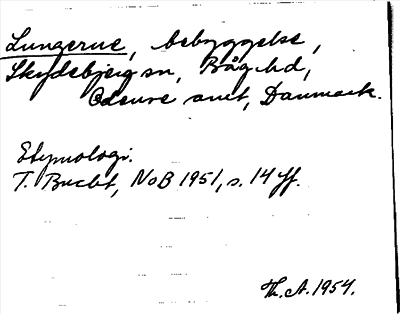 Lungerne, bebyggelse,
Skydebjerg sn, Båg hd,
Odense amt, Danmark.
Etymologi.
T. Bucht, NoB 1951, s. 14 ff.
Th. A. 1954.